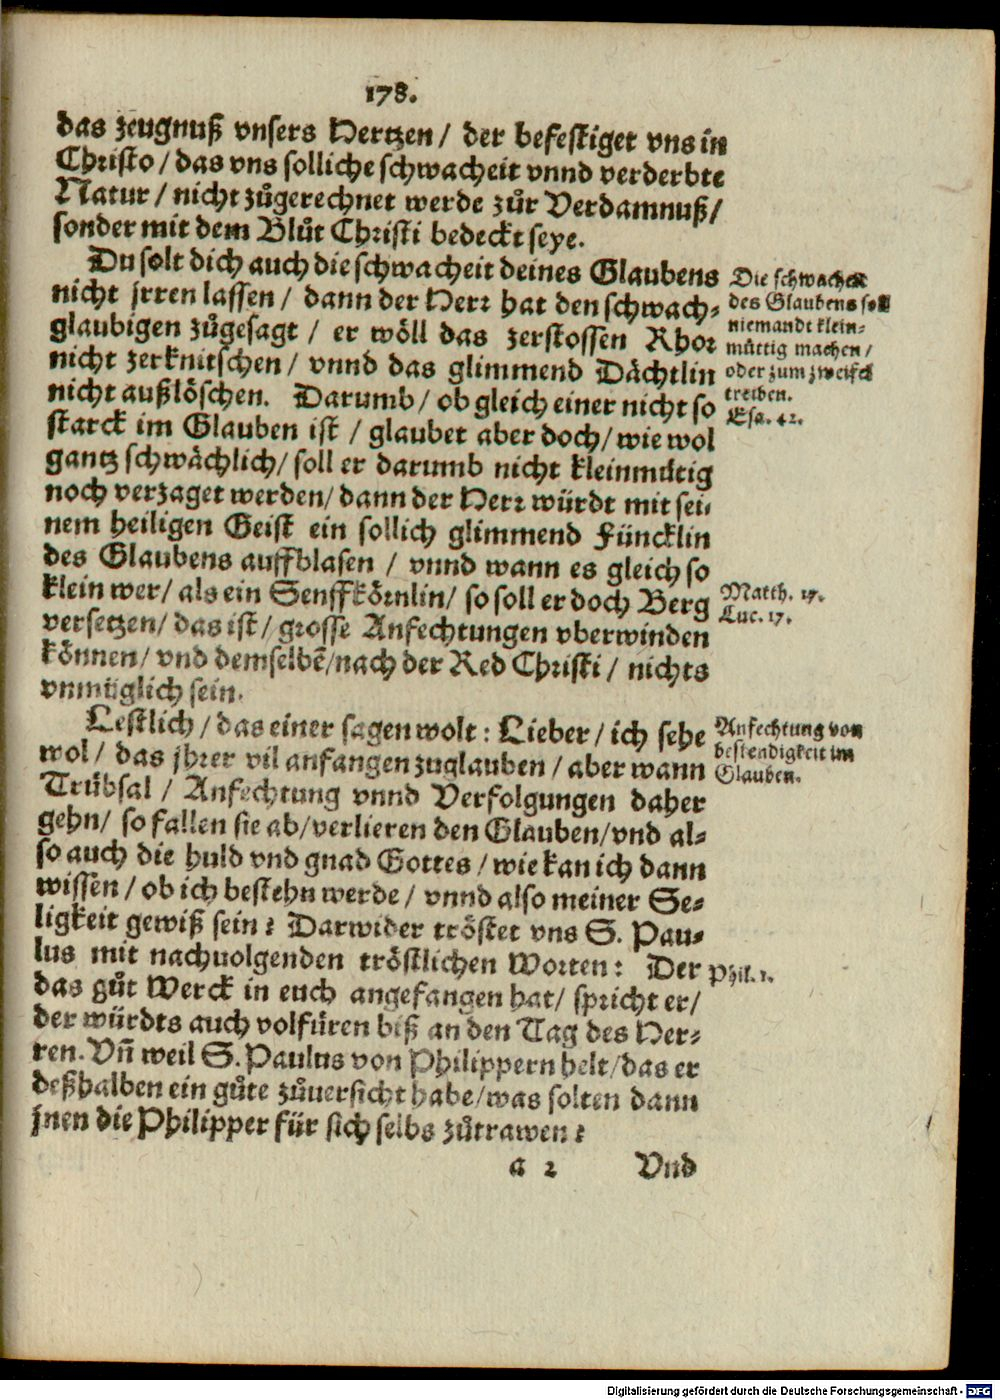 178.
das zeugnuß vnsers Hertzen / der befestiget vns in
Christo / das vns solliche schwacheit vnnd verderbte
Natur / nicht zůgerechnet werde zůr Verdamnuß /
sonder mit dem Blůt Christi bedeckt seye.
Du solt dich auch die schwacheit deines Glaubens
nicht jrren lassen / dann der Herr hat den schwach-
glaubigen zůgesagt / er wöll das zerstossen Rhor
nicht zerknitschen / vnnd das glimmend Dächtlin
nicht außlöschen. Darumb / ob gleich einer nicht so
starck im Glauben ist / glaubet aber doch / wie wol
gantz schwächlich / soll er darumb nicht kleinmütig
noch verzaget werden / dann der Herr würdt mit sei-
nem heiligen Geist ein sollich glimmend Füncklin
des Glaubens auffblasen / vnnd wann es gleich so
klein wer / als ein Senffkörnlin / so soll er doch Berg
versetzen / das ist / grosse Anfechtungen vberwinden
können / vnd demselbē / nach der Red Christi / nichts
vnmüglich sein.
Die schwacheit
des Glaubens soll
niemandt klein-
müttig machen /
oder zum zweifel
treiben.
Esa. 42.
Matth. 17.
Luc. 17.
Lestlich / das einer sagen wolt: Lieber / ich sehe
wol / das jhrer vil anfangen zuglauben / aber wann
Trübsal / Anfechtung vnnd Verfolgungen daher
gehn / so fallen sie ab / verlieren den Glauben / vnd al-
so auch die huld vnd gnad Gottes / wie kan ich dann
wissen / ob ich bestehn werde / vnnd also meiner Se-
ligkeit gewiß sein? Darwider tröstet vns S. Pau-
lus mit nachuolgenden tröstlichen Worten: Der
das gůt Werck in euch angefangen hat / spricht er /
der würdts auch volfüren biß an den Tag des Her-
ren. Vñ weil S. Paulus von Philippern helt / das er
deßhalben ein gůte zůuersicht habe / was solten dann
jnen die Philipper für sich selbs zůtrawen?
Anfechtung von
bestendigkeit im
Glauben.
Phil. 1.
a 2 Vnd
Digitalisierung gefördert durch die Deutsche Forschungsgemeinschaft - DFG